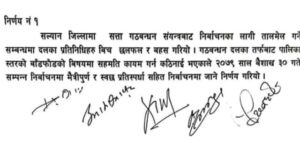 निर्णय नं १
सल्यान जिल्लामा सत्ता गठबन्धन संयन्त्रबाट निर्वाचनका लागी तालमेल गर्ने
सम्बन्धमा दलका प्रतिनिधिहरु बिच छलफल र बहस गरियो । गठबन्धन दलका तर्फबाट पालिका
स्तरको बाँडफाँडको बिषयमा सहमति कायम गर्न कठिनाई भएकाले २०७९ साल बैशाख ३० गते
सम्पन्न निर्वाचनमा मैत्रीपूर्ण र स्वच्छ प्रतिस्पर्धा सहित निर्वाचनमा जाने निर्णय गरियो ।